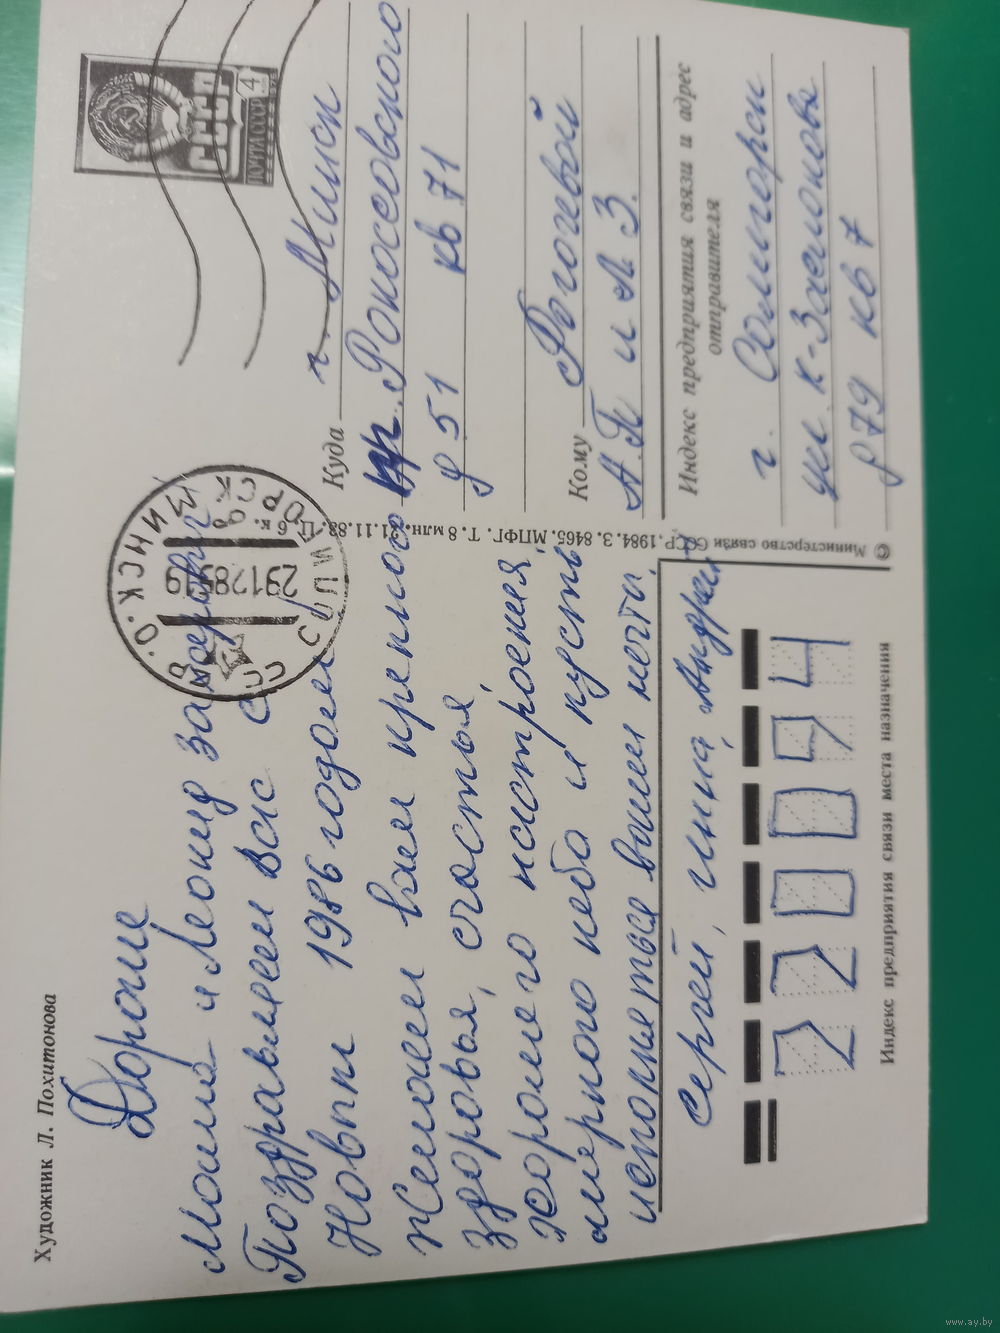 Художник Л. Похитонова
Дорогие
Мама и Леонид
Поздравляем вас с
Новым 1986 годом
Желаем вам крепкого
здоровья, счастья,
хорошего настроения,
мирного неба и пусть
исполняться ваши мечты.
Сергей, Инна, Андрей
ПОЧТА СССР
4
МИНСК. О.
29128519
Куда г. Минск
пр. Рокоссовского
д 51 кв 71
Кому Роговой
А.П и Л З.
Индекс предприятия связи и адрес
отправителя
г. Солигорск
ул. К-Заслонова
д 79 кв 7
© Министерство связи СССР. 1984. З. 8465. МПФГ. Т. 8 млн. 21.11.83. Ц. 6 к.
220094
Индекс предприятия связи места назначения
www.ay.by